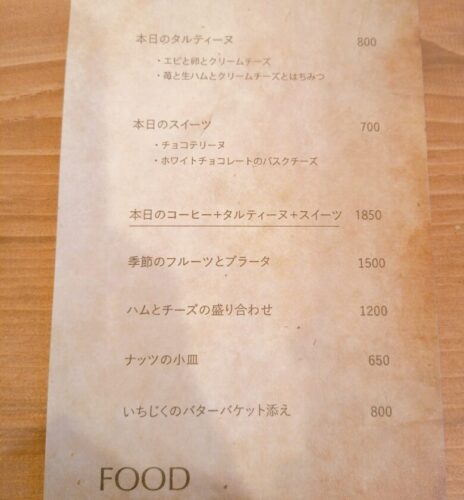 本日のタルティーヌ 800
・エビと卵とクリームチーズ
・苺と生ハムとクリームチーズとはちみつ
本日のスイーツ 700
・チョコテリーヌ
・ホワイトチョコレートのバスクチーズ
本日のコーヒー+タルティーヌ+スイーツ 1850
季節のフルーツとブラータ 1500
ハムとチーズの盛り合わせ 1200
ナッツの小皿 650
いちじくのバターバケット添え 800
FOOD